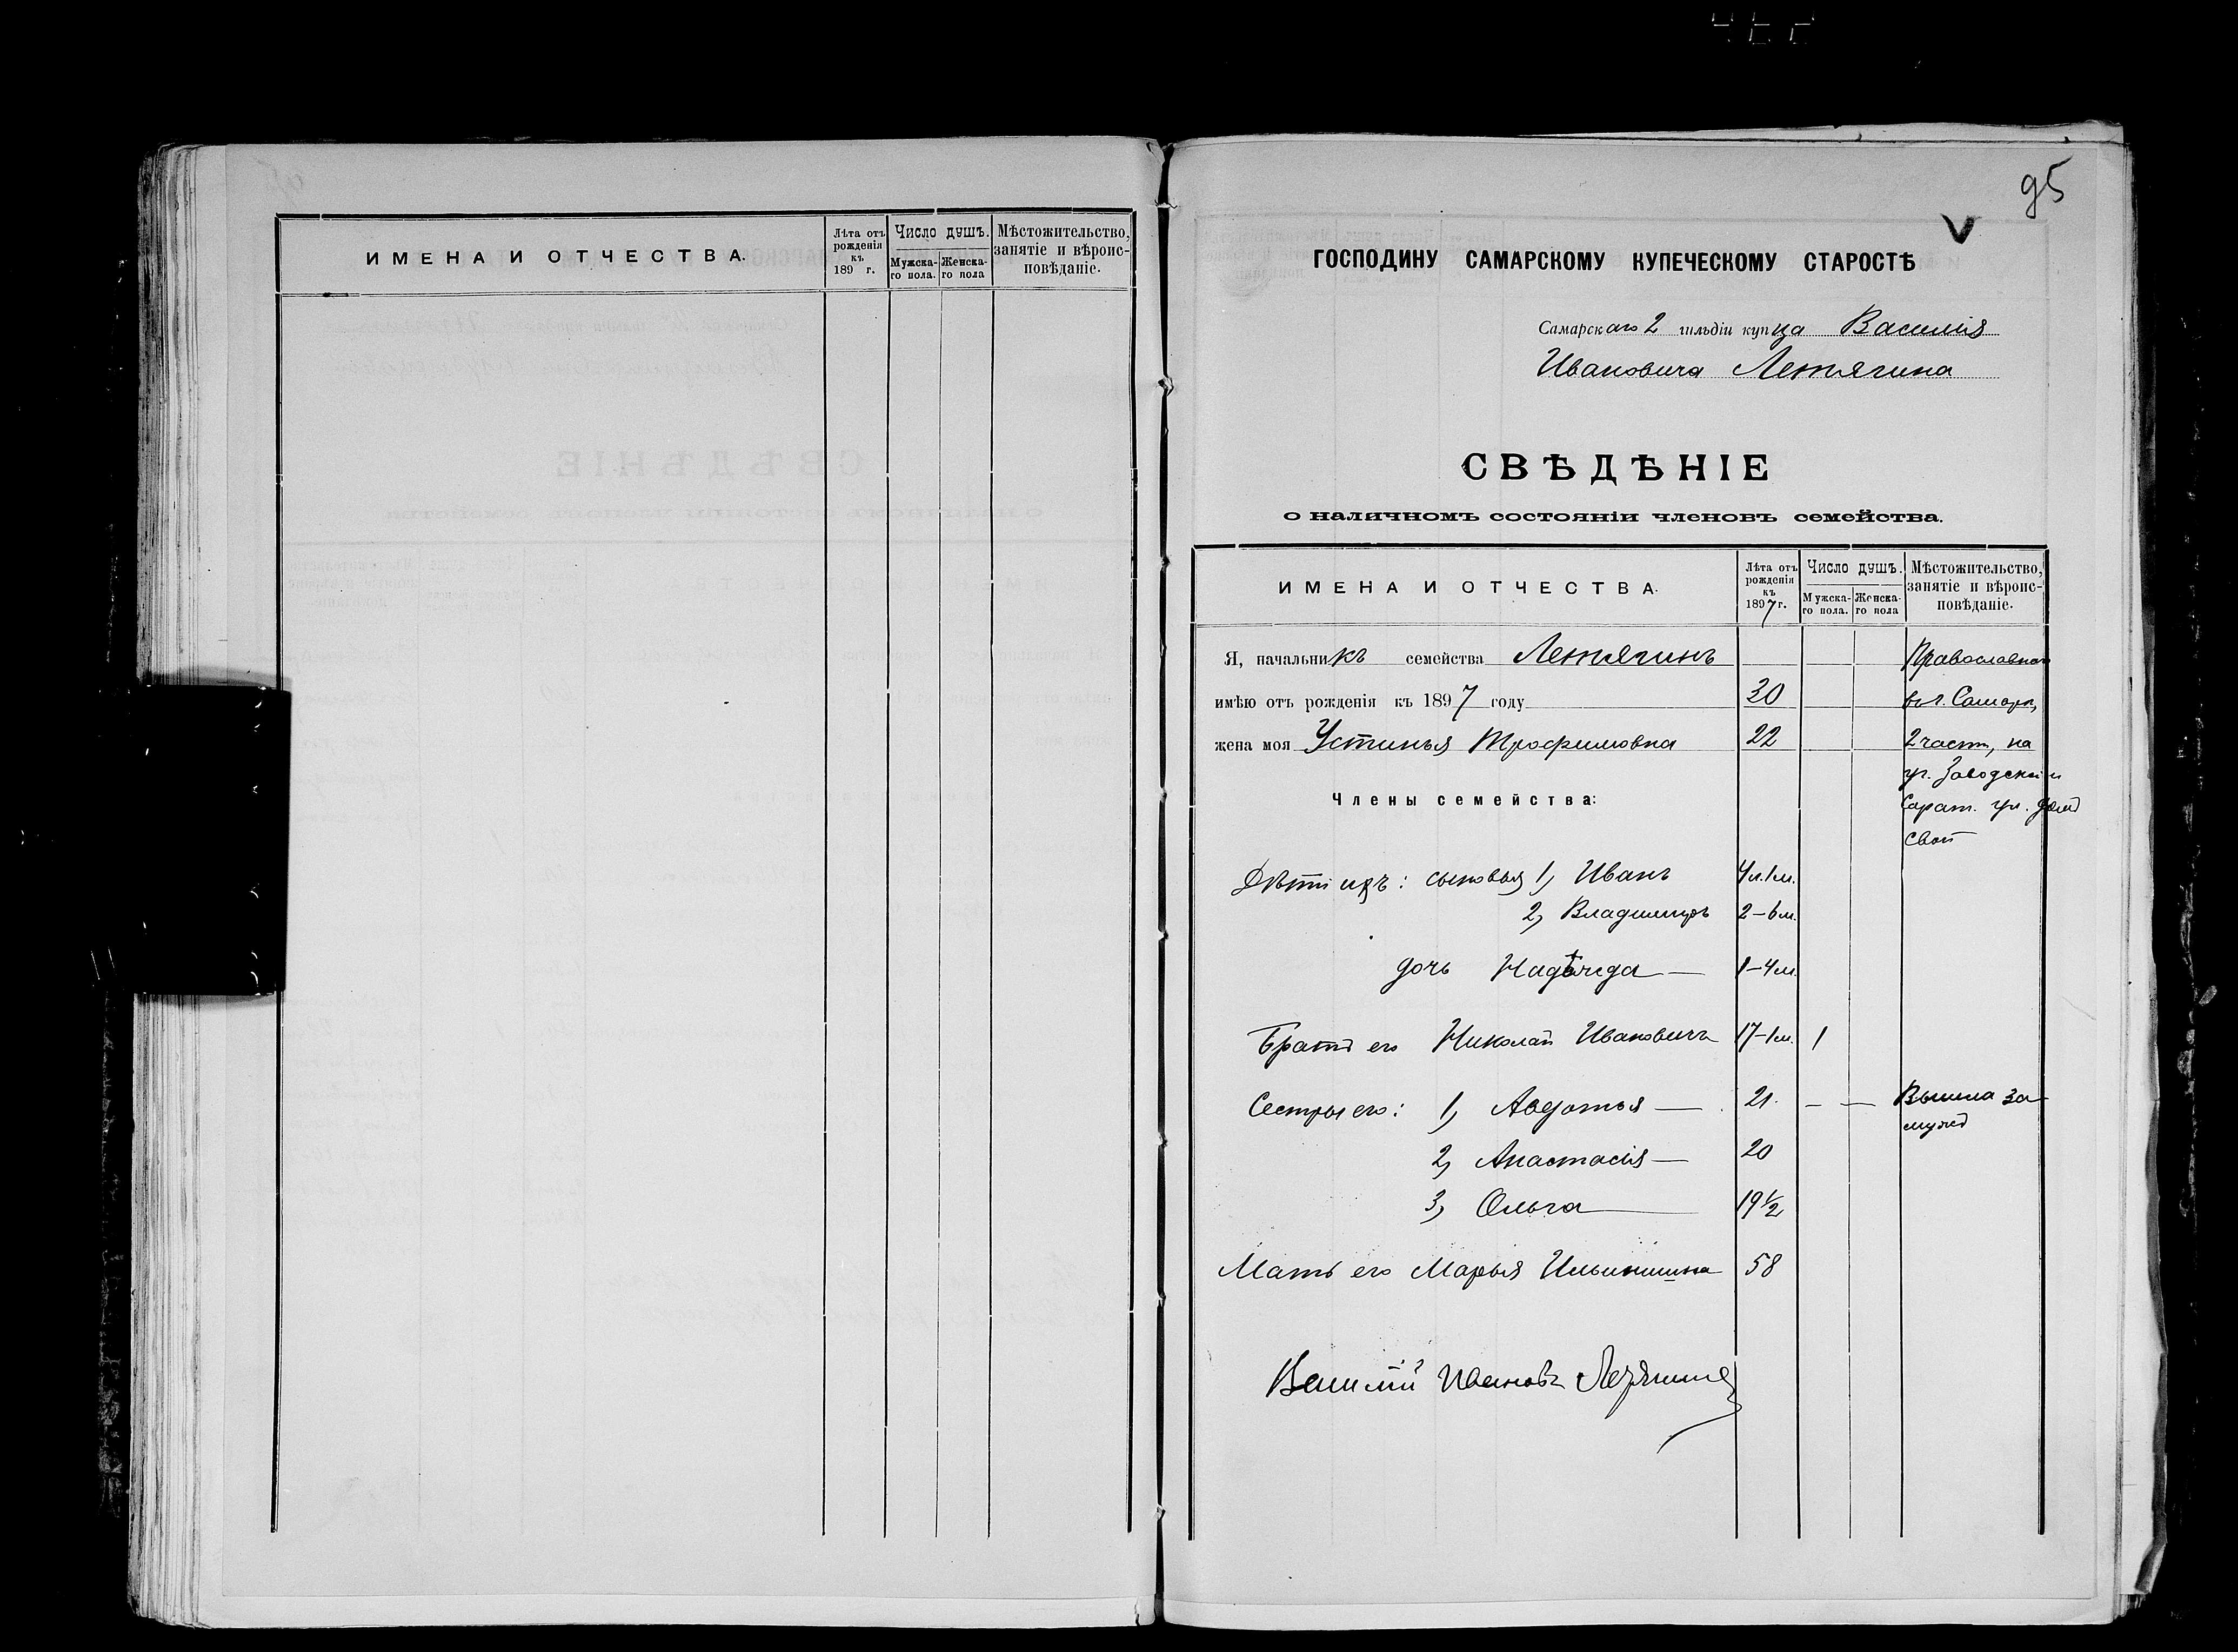 ИМЕНА И ОТЧЕСТВА.
Лѣта отъ рожденія къ 189 г.
Число душъ.
Мужска-го пола.
Женска-го пола
Мѣстожительство, занятіе и вѣроис-повѣданіе.
95
V
ГОСПОДИНУ САМАРСКОМУ КУПЕЧЕСКОМУ СТАРОСТѢ
Самарскаго 2 гильдіи купца Василія
Ивановича Летягина
СВѢДѢНІЕ
о наличномъ состояніи членовъ семейства.
ИМЕНА И ОТЧЕСТВА.
Лѣта отъ рожденія къ 1897 г.
Число душъ.
Мужска-го пола.
Женска-го пола
Мѣстожительство, занятіе и вѣроис-повѣданіе.
Я, начальникъ семейства Летягинъ
имѣю отъ рожденія къ 1897 году 30
жена моя Устинья Трофимовна 22
Православнаго
в г. Самарѣ,
2 части, на
уг. Заводской и
Сарат. ул. домъ
свой
Члены семейства:
Дѣти ихъ: сыновья 1, Иванъ 4 л. 1 м.
2, Владимиръ 2-6 м.
дочь Надѣжда — 1-4 м.
Братъ его Николай Ивановичъ 17-1 м. 1
Сестры его: 1, Авдотья — 21. — — Вышла за-
мужъ
2, Анастасія — 20
3, Ольга — 19 1/2
Мать его Марья Ильинишна 58
Василий Ивановъ Летягинъ